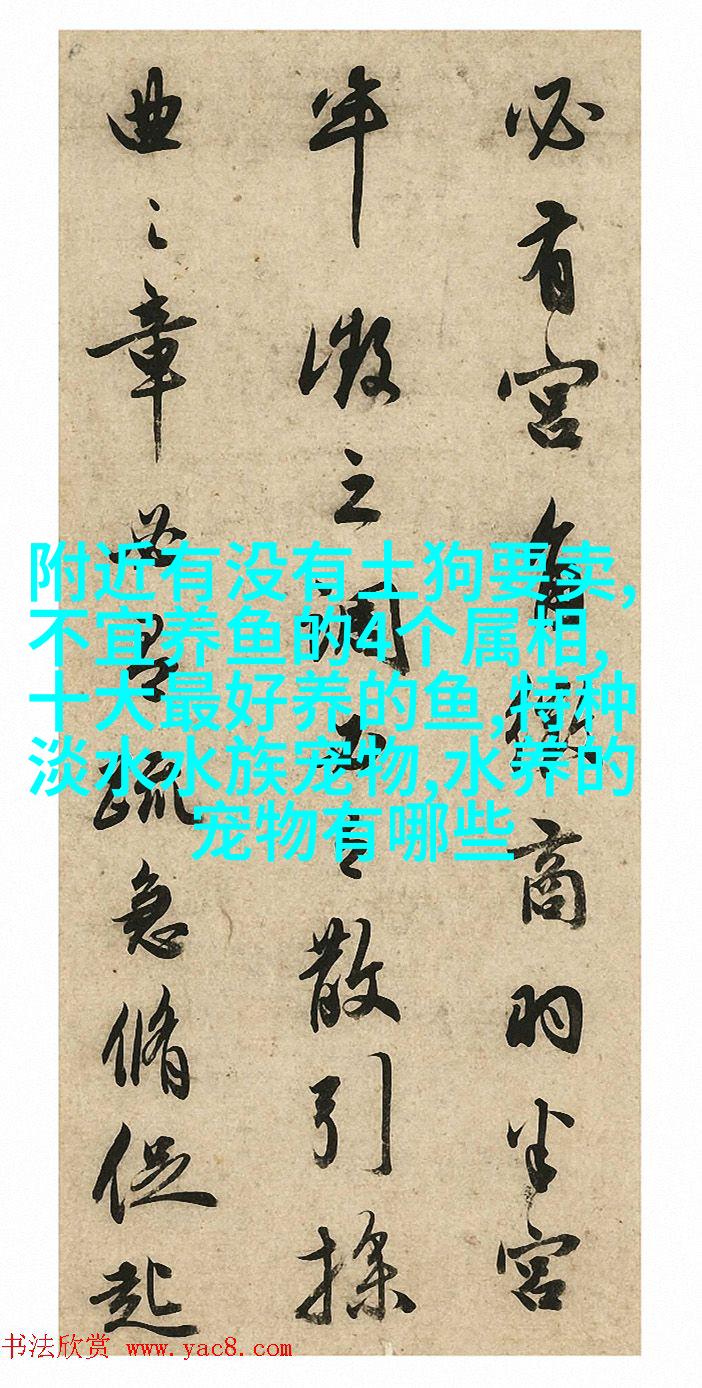 必有宮角徵商羽半宮
半徵之調散引操
曲之章疏急脩促起
附近有没有土狗要卖,
不宜养鱼的4个属相,
十大最好养的鱼,特种
淡水水族宠物,水养的
宠物有哪些
书法欣赏 www.yac8.com